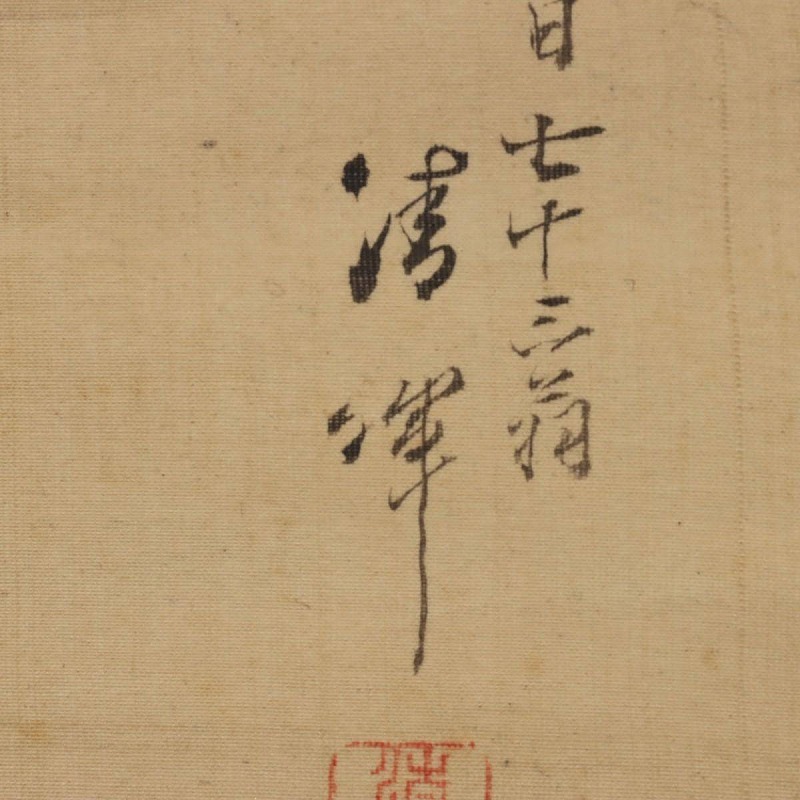 日七十三翁
清暉